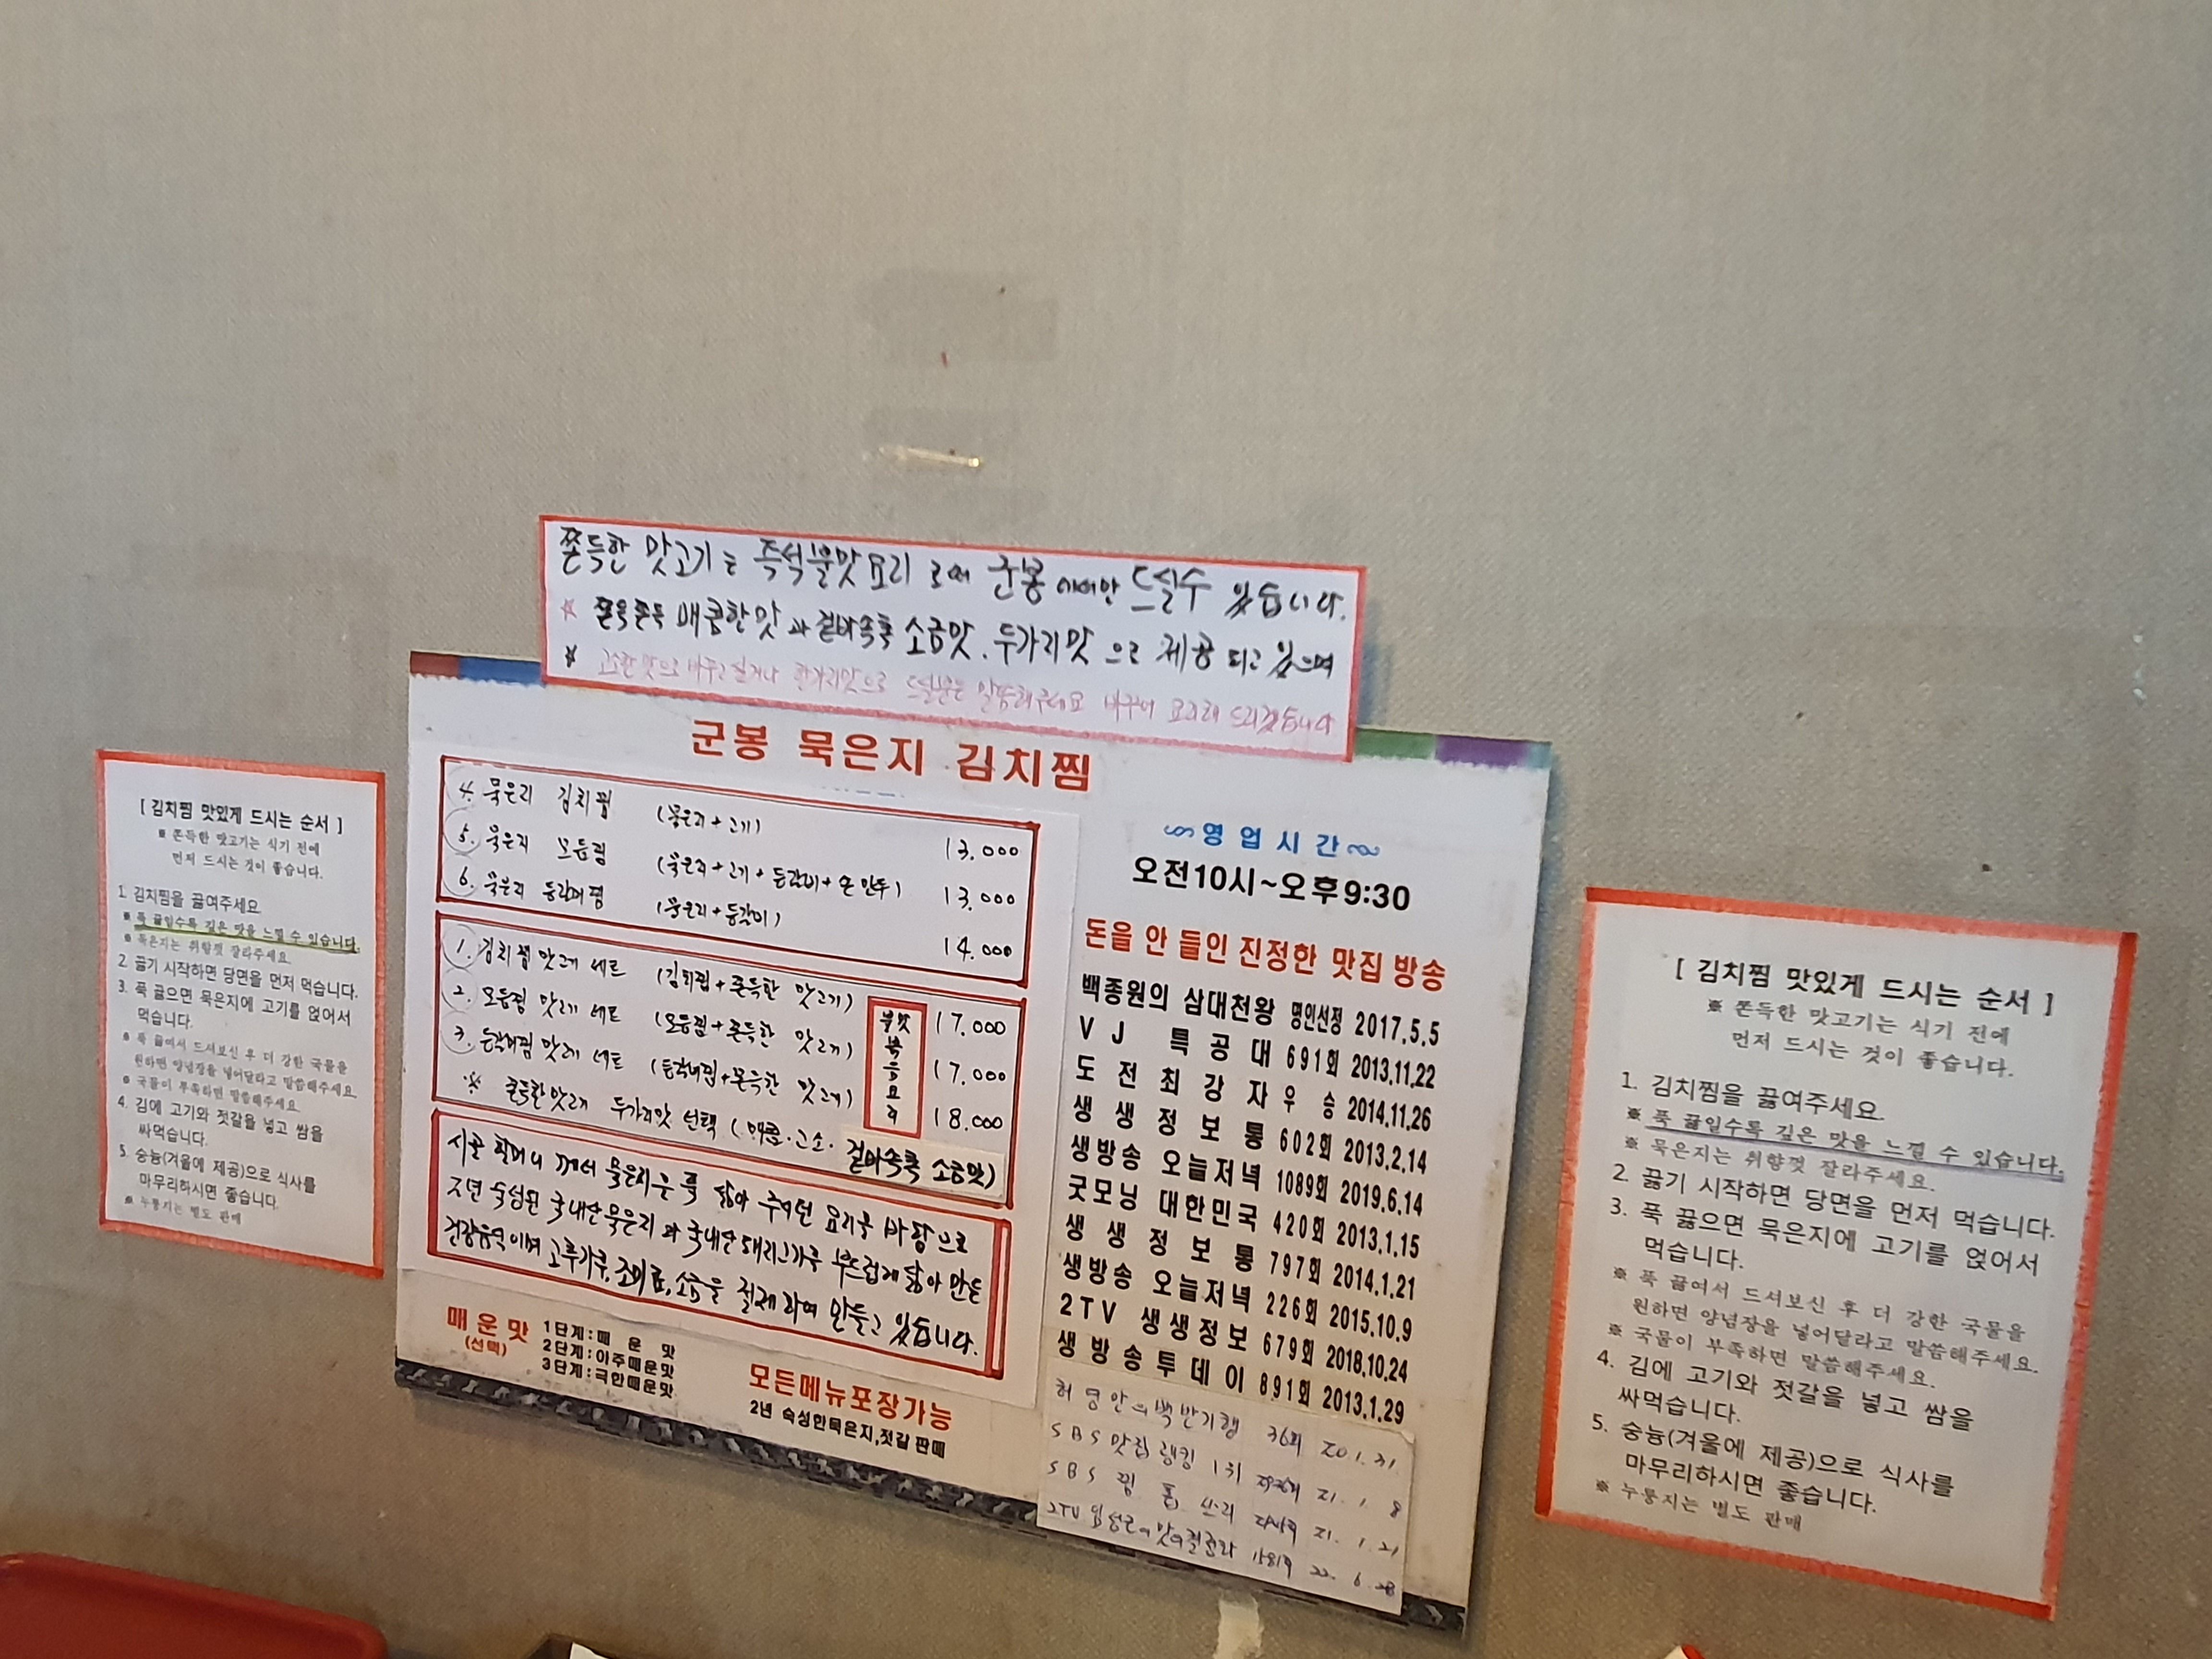 쫀득한 맛고기는 즉석불맛요리 로써 군봉 에서만 드실수 있습니다.
☆ 쫀득쫀득 매콤한맛 과 겉바속촉 소금맛. 두가지맛 으로 제공 되고 있으며
☆ 고소한맛으로 바꾸고싶거나 한가지맛으로 드실분은 말씀해주세요 바꾸어 요리해 드리겠습니다
군봉 묵은지 김치찜
4. 묵은지 김치찜 (묵은지+고기) 13.000
5. 묵은지 모듬찜 (묵은지+고기+등갈비+손만두) 13.000
6. 묵은지 등갈비찜 (묵은지+등갈비) 14.000
1. 김치찜 맛고기 세트 (김치찜+쫀득한 맛고기) 17.000
2. 모듬찜 맛고기 세트 (모듬찜+쫀득한 맛고기) 17.000
3. 등갈비찜 맛고기 세트 (등갈비찜+쫀득한 맛고기) 18.000
불맛볶음요리
※ 쫀득한맛고기 두가지맛 선택 (매콤·고소· 겉바속촉 소금맛)
시골 할머니 께서 묵은지를 푹 삶아 주시던 요리를 바탕으로
2년 숙성된 국내산묵은지 과 국내산 돼지고기를 부드럽게 삶아 만든
건강음식이며 고추가루,조미료,소금을 절제 하여 만들고 있습니다.
매운맛
(선택)
1단계:매 운 맛
2단계:아주매운맛
3단계:극한매운맛
모든메뉴포장가능
2년 숙성한묵은지,젓갈 판매
영업시간
오전10시~오후9:30
돈을 안 들인 진정한 맛집 방송
백종원의 삼대천왕 명인선정 2017.5.5
VJ 특공대 691회 2013.11.22
도전최강자우승 2014.11.26
생생정보통 602회 2013.2.14
생방송 오늘저녁 1089회 2019.6.14
굿모닝 대한민국 420회 2013.1.15
생생정보통 797회 2014.1.21
생방송 오늘저녁 226회 2015.10.9
2TV 생생정보 679회 2018.10.24
생방송투데이 891회 2013.1.29
허영만의백반기행 36회
SBS 맛집 랭킹 1위 21. 1. 8
SBS 21. 1. 21
2TV 22. 6. 28
[ 김치찜 맛있게 드시는 순서 ]
※ 쫀득한 맛고기는 식기 전에
먼저 드시는 것이 좋습니다.
1. 김치찜을 끓여주세요
※ 푹 끓일수록 깊은 맛을 느낄 수 있습니다.
※ 묵은지는 취향껏 잘라주세요.
2. 끓기 시작하면 당면을 먼저 먹습니다.
3. 푹 끓으면 묵은지에 고기를 얹어서
먹습니다.
※ 푹 끓여서 드셔보신 후 더 강한 국물을
원하면 양념장을 넣어달라고 말씀해주세요.
※ 국물이 부족하면 말씀해주세요.
4. 김에 고기와 젓갈을 넣고 쌈을
싸먹습니다.
5. 숭늉(겨울에 제공)으로 식사를
마무리하시면 좋습니다.
※ 누룽지는 별도 판매
[ 김치찜 맛있게 드시는 순서 ]
※ 쫀득한 맛고기는 식기 전에
먼저 드시는 것이 좋습니다.
1. 김치찜을 끓여주세요.
※ 푹 끓일수록 깊은 맛을 느낄 수 있습니다.
※ 묵은지는 취향껏 잘라주세요.
2. 끓기 시작하면 당면을 먼저 먹습니다.
3. 푹 끓으면 묵은지에 고기를 얹어서
먹습니다.
※ 푹 끓여서 드셔보신 후 더 강한 국물을
원하면 양념장을 넣어달라고 말씀해주세요.
※ 국물이 부족하면 말씀해주세요.
4. 김에 고기와 젓갈을 넣고 쌈을
싸먹습니다.
5. 숭늉(겨울에 제공)으로 식사를
마무리하시면 좋습니다.
※ 누룽지는 별도 판매